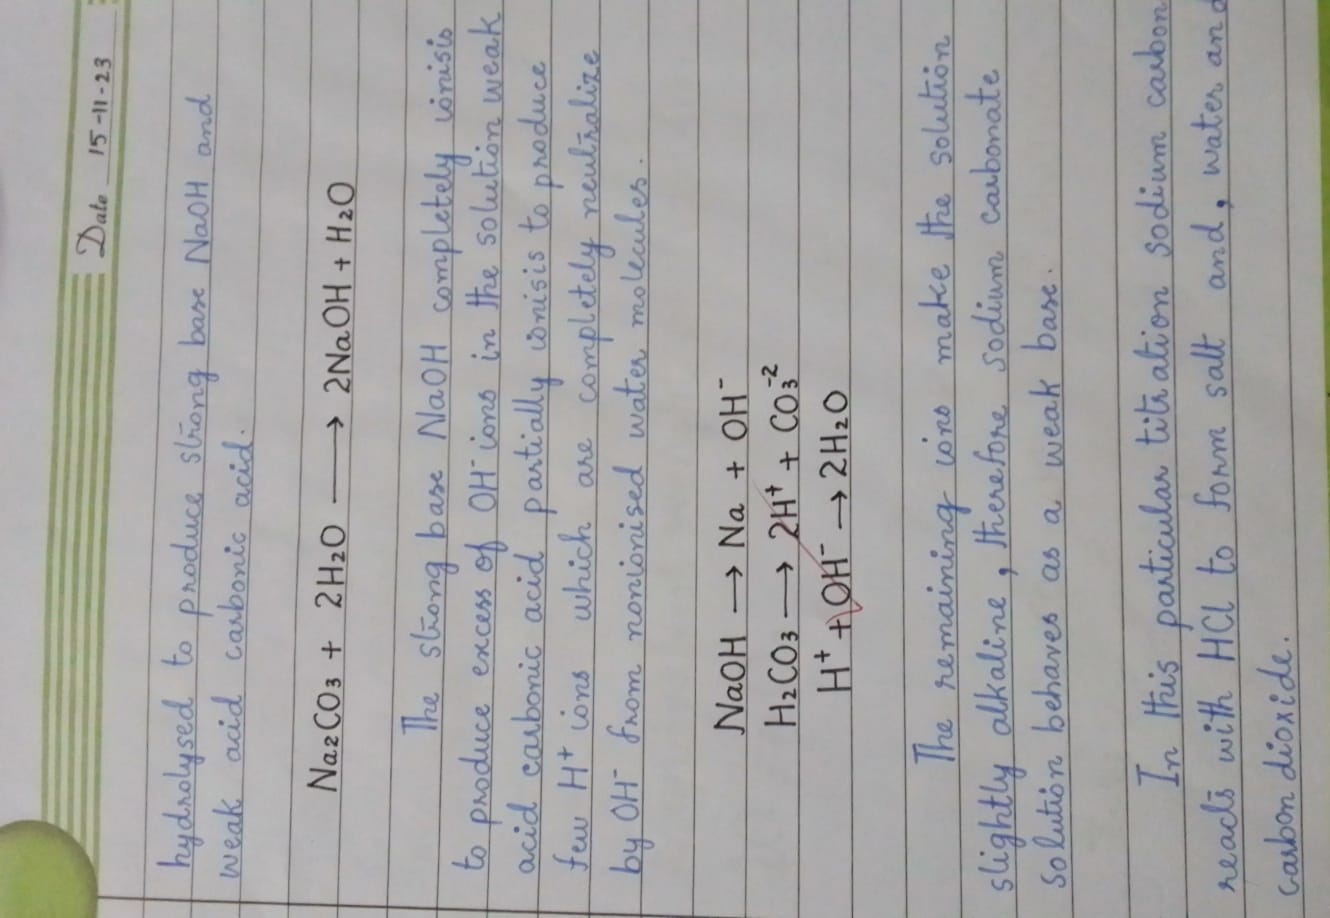 Date 15-11-23
hydrolysed to produce strong base NaOH and
weak acid carbonic acid.
Na₂CO₃ + 2H₂O ⟶ 2NaOH + H₂O
The strong base NaOH completely ionisis
to produce excess of OH⁻ ions in the solution weak
acid carbonic acid partially ionisis to produce
few H⁺ ions which are completely neutralize
by OH⁻ from nonionised water molecules.
NaOH → Na + OH⁻
H₂CO₃ → 2H⁺ + CO₃⁻²
H⁺ + OH⁻ → 2H₂O
The remaining ions make the solution
slightly alkaline, therefore sodium carbonate
solution behaves as a weak base.
In this particular titration sodium carbon
reacts with HCl to form salt and, water and
carbon dioxide.